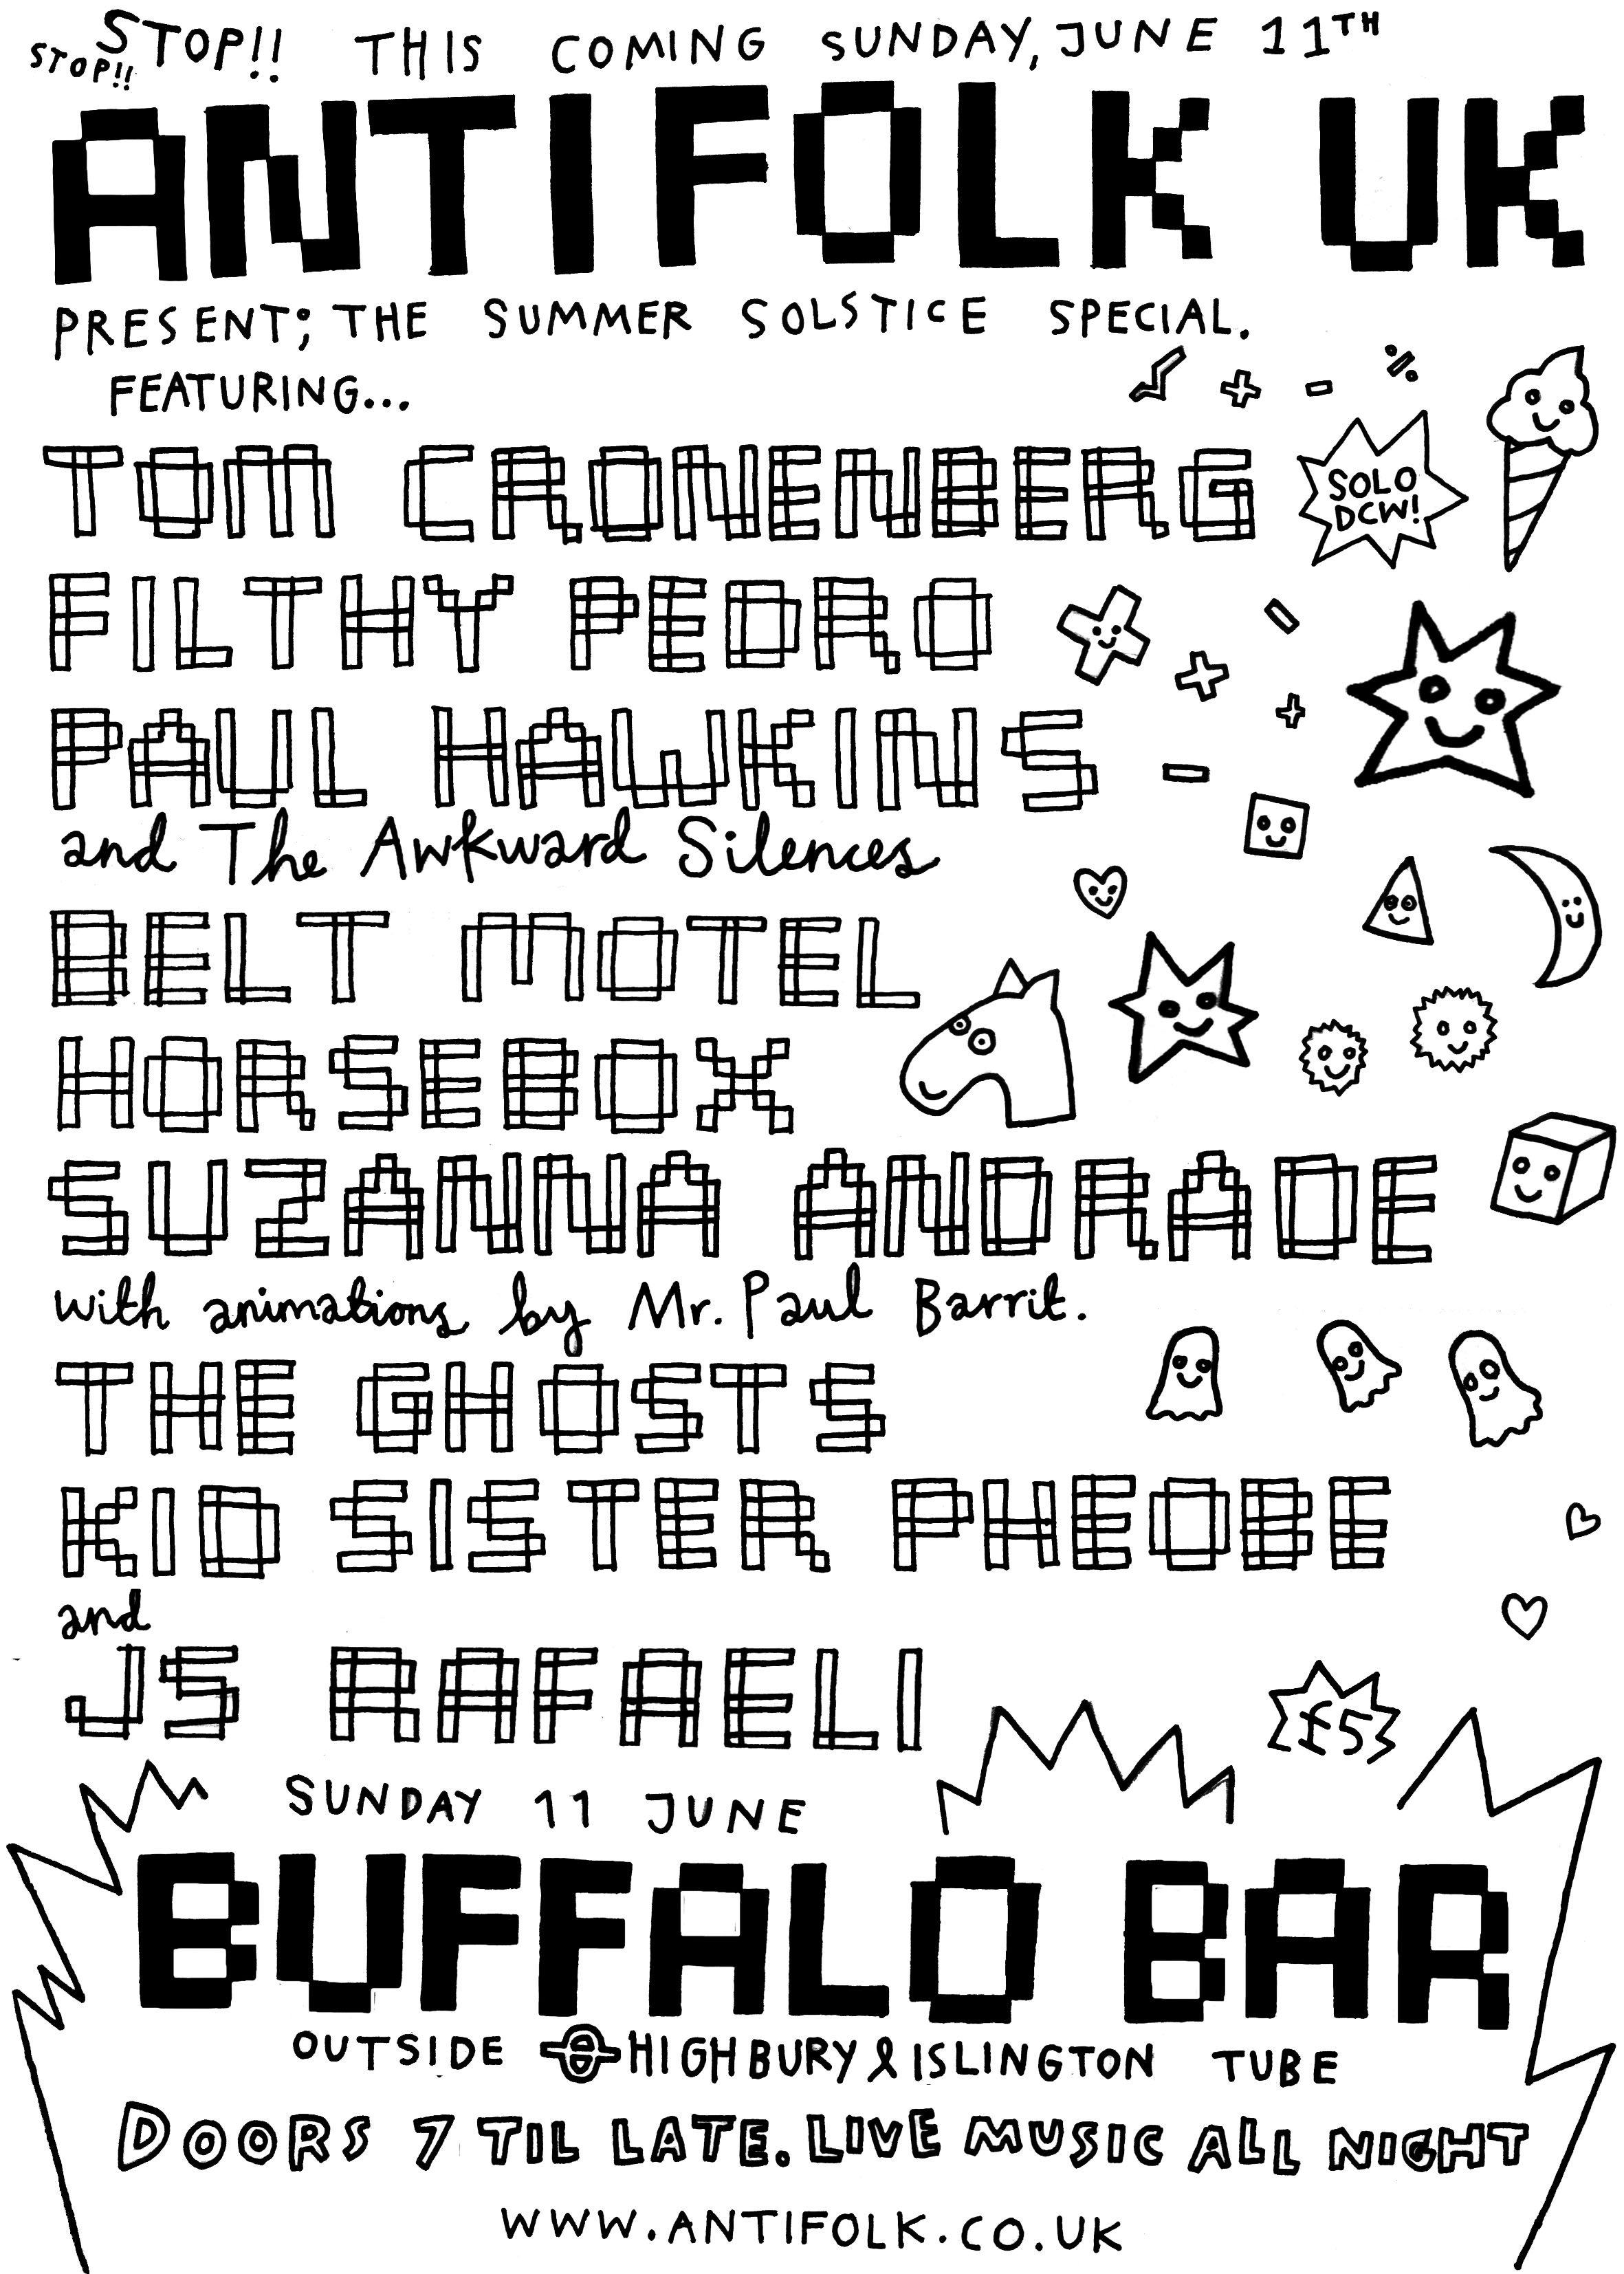 STOP!! THIS COMING SUNDAY, JUNE 11TH
STOP!!
ANTIFOLK UK
PRESENT; THE SUMMER SOLSTICE SPECIAL.
FEATURING...
TOM CRONENBERG
SOLO
DCW!
FILTHY PEDRO
PAUL HAWKINS
and The Awkward Silences
BELT MOTEL
HORSEBOX
SUZANNA ANDRADE
with animations by Mr. Paul Barrit.
THE GHOSTS
KID SISTER PHEOBE
and
JS RAFAELI
£5
SUNDAY 11 JUNE
BUFFALO BAR
OUTSIDE HIGHBURY & ISLINGTON TUBE
DOORS 7 TIL LATE. LIVE MUSIC ALL NIGHT
WWW.ANTIFOLK.CO.UK